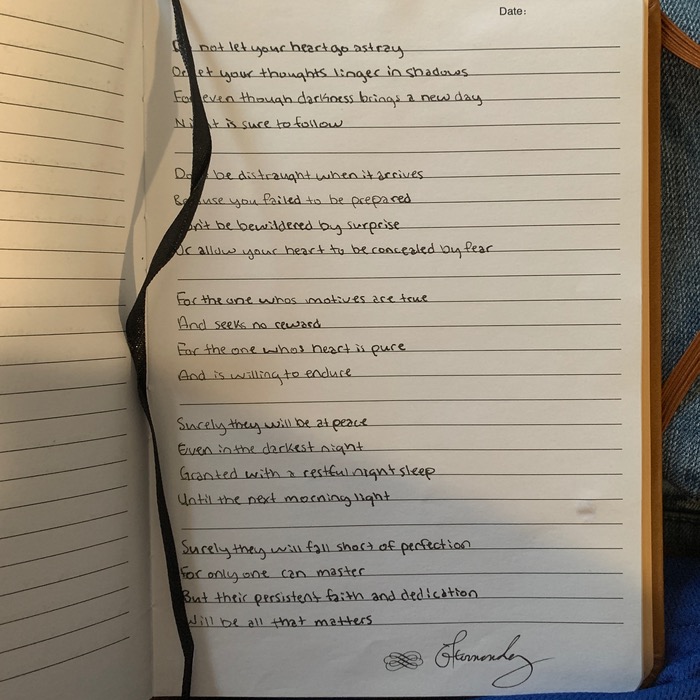 Date:
Do not let your heart go astray
Or let your thoughts linger in shadows
For even though darkness brings a new day
Night is sure to follow
Don't be distraught when it arrives
Because you failed to be prepared
Don't be bewildered by surprise
Or allow your heart to be concealed by fear
For the one whos motives are true
And seeks no reward
For the one whos heart is pure
And is willing to endure
Surely they will be at peace
Even in the darkest night
Granted with a restful night sleep
Until the next morning light
Surely they will fall short of perfection
For only one can master
But their persistent faith and dedication
Will be all that matters
Hernandez